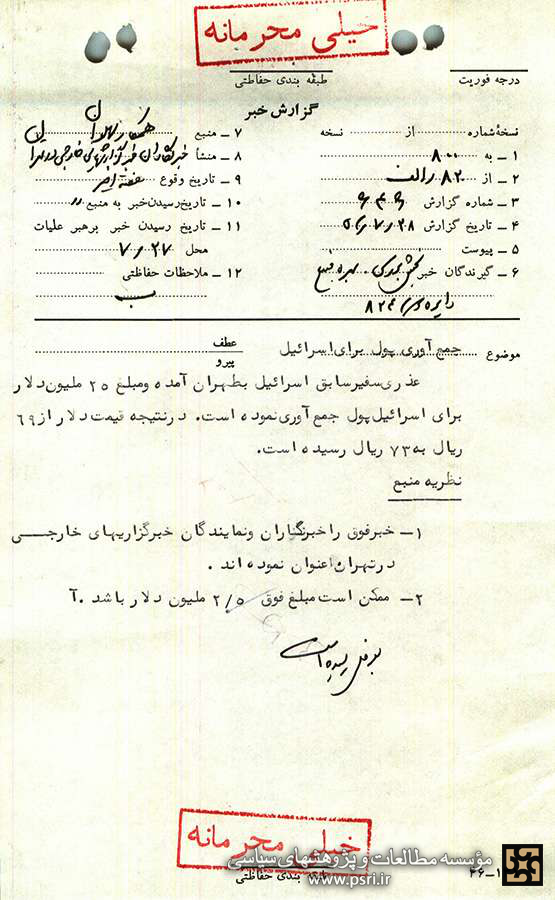 خیلی محرمانه
درجه فوریت
طبقه بندی حفاظتی
گزارش خبر
نسخهٔ شماره از نسخه
۱ – به ۸۰۰
۲ – از ۸۲۰ / الف
۳ – شماره گزارش
۴ – تاریخ گزارش ۲۸ / ۷ /
۵ – پیوست
۶ – گیرندگان خبر بخش
دایره
۷ – منبع همکار تهران
۸ – منشأ خبرنگاران خبرگزاریهای خارجی در تهران
۹ – تاریخ وقوع هفته اخیر
۱۰ – تاریخ رسیدن خبر به منبع
۱۱ – تاریخ رسیدن خبر برهبر عملیات
محل ۲۷ / ۷
۱۲ – ملاحظات حفاظتی
ب
موضوع جمع آوری پول برای اسرائیل
عطف
پیرو
عذری سفیر سابق اسرائیل بطهران آمده و مبلغ ۲۵ ملیون دلار
برای اسرائیل پول جمع آوری نموده است. در نتیجه قیمت دلار از ۶۹
ریال به ۷۳ ریال رسیده است.
نظریه منبع
۱– خبر فوق را خبرنگاران و نمایندگان خبرگزاریهای خارجی
در تهران عنوان نموده اند .
۲– ممکن است مبلغ فوق ۲/۵ ملیون دلار باشد .آ
خیلی محرمانه
طبقه بندی حفاظتی
۲۶–۱
مؤسسه مطالعات و پژوهشهای سیاسی
www.psri.ir